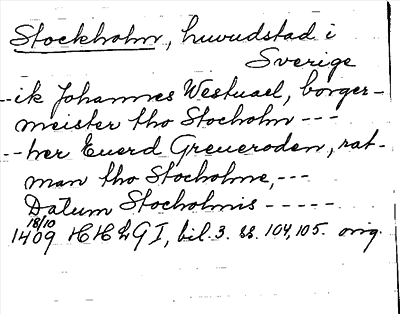 Stockholm, huvudstad i
Sverige
--ik Johannes Westuael, borger-
meister tho Stocholm ---
--her Euerd Greueroden, rat-
man tho Stocholme, ---
Datum Stocholmis -----
18/10
1409 HHLGI, bil. 3. ss. 104, 105. orig.